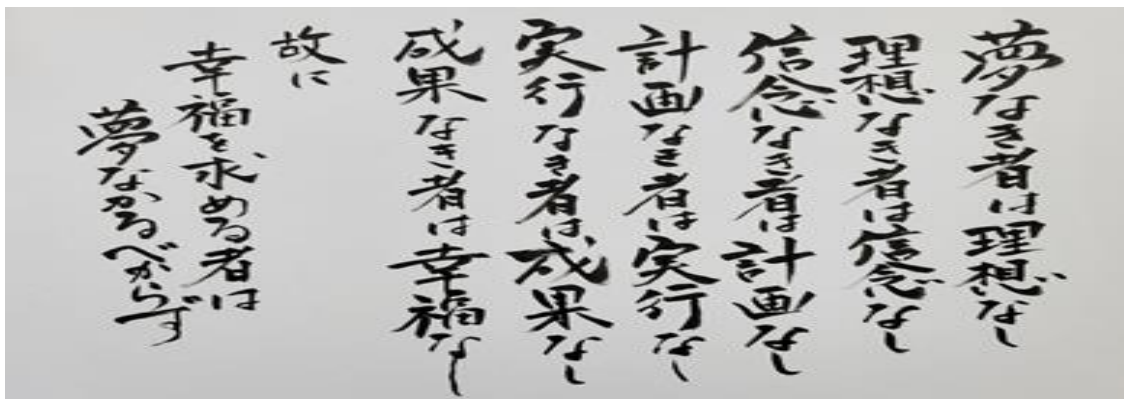 夢なき者は理想なし
理想なき者は信念なし
信念なき者は計画なし
計画なき者は実行なし
実行なき者は成果なし
成果なき者は幸福なし
故に
幸福を求める者は
夢なかるべからず